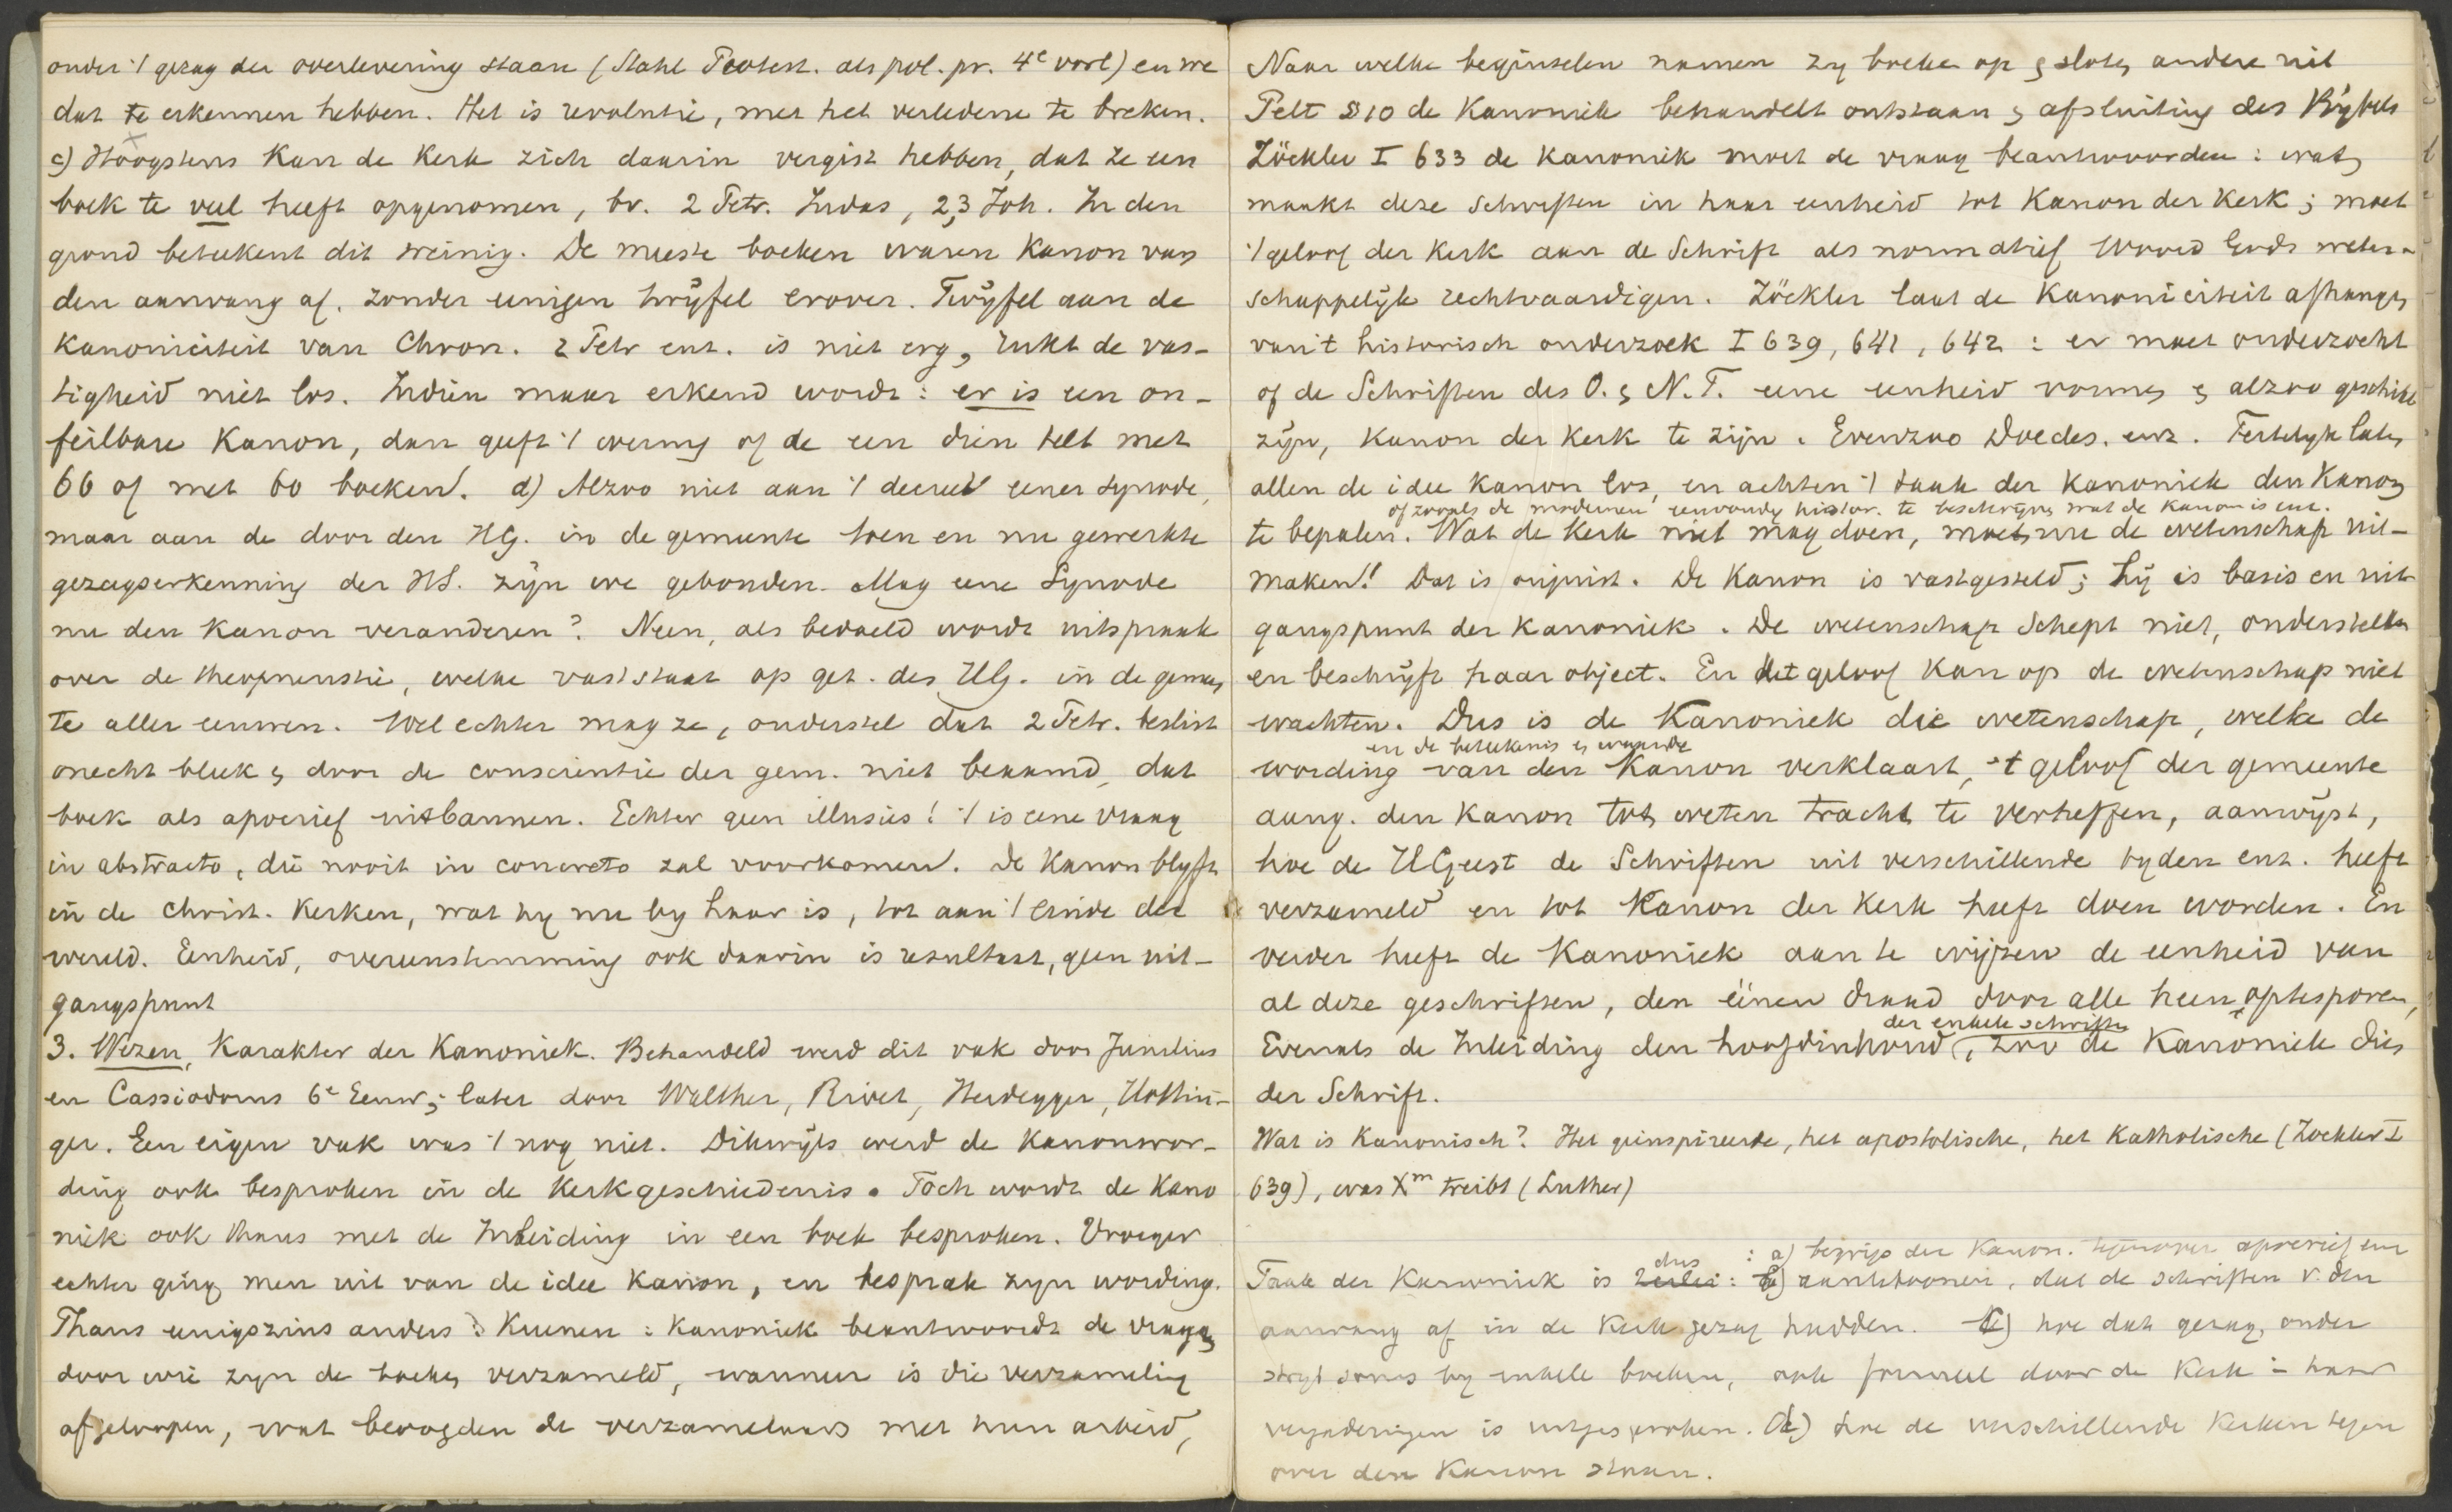 onder 't gezag der overlevering staan (Stahl Protest. als pol. pr. 4e vorl) en we
dat te erkennen hebben. Het is revolutie, met het verledene te breken.
c) Hoogstens kan de Kerk zich daarin vergist hebben, dat ze een
boek te veel heeft opgenomen, bv. 2 Petr. Judas, 2,3 Joh. In den
grond beteekent dit weinig. De meeste boeken waren Kanon van
den aanvang af. zonder eenigen twijfel erover. Twijfel aan de
Kanoniciteit van Chron. 2 Petr enz. is niet erg, rukt de vas-
tigheid niet los. Indien maar erkend wordt: er is een on-
feilbare Kanon, dan geeft 't weinig of de een dien telt met
66 of met 60 boeken. d) Alzoo niet aan 't decreet eener synode,
maar aan de door den HG. in de gemeente toen en nu gewerkte
gezagserkenning der HS. zijn we gebonden. Mag eene Synode
nu den Kanon veranderen? Neen, als bedoeld wordt uitspraak
over de theopneustie, welke vaststaat op get. des HG. in de gemeen
te aller eeuwen. Wel echter mag ze, onderstel dat 2 Petr. beslist
onecht bleek & door de conscientie der gem. niet beaamd, dat
boek als apocrief uitbannen. Echter geen illusies! 't is eene vraag
in abstracto, die nooit in concreto zal voorkomen. De Kanon blijft
in de Christ. Kerken, wat hij nu by haar is, tot aan 't einde der
wereld. Eenheid, overeenstemming ook daarin is resultaat, geen uit-
gangspunt
3. Wezen, Karakter der Kanoniek. Behandeld werd dit vak door Junilius
en Cassiodorus 6e Eeuw; later door Walther, Rivet, Heidegger, Hottin-
ger. Een eigen vak was 't nog niet. Dikwijls werd de Kanonswor-
ding ook besproken in de Kerkgeschiedenis. Toch wordt de Kano
niek ook thans met de Inleiding in een boek besproken. Vroeger
echter ging men uit van de idee Kanon, en besprak zijn wording.
Thans eenigszins anders: Kuenen: Kanoniek beantwoordt de vragen
door wie zijn de boeken verzameld, wanneer is die verzameling
afgeloopen, wat beoogden de verzamelaars met hun arbeid,
Naar welke beginselen namen zij boeken op & sloten andere uit
Pelt §10 de Kanoniek behandelt ontstaan & afsluiting des Bijbels
Zöckler I 633 de Kanoniek moet de vraag beantwoorden: wat
maakt deze Schriften in haar eenheid tot Kanon der Kerk; moet
't geloof der Kerk aan de Schrift als normatief Woord Gods weten-
schappelijk rechtvaardigen. Zöckler laat de Kanoniciteit afhangen
van 't historisch onderzoek I 639, 641, 642: er moet onderzocht
of de Schriften des O. & N.T. eene eenheid vormen & alzoo geschikt
zijn, Kanon der Kerk te zijn. Evenzoo Doedes. enz. Feitelijk laten
allen de idee Kanon los, en achten 't taak der Kanoniek den Kanon
of zooals de modernen eenvoudig histor. te beschrijven wat de Kanon is enz.
te bepalen. Wat de Kerk niet mag doen, moet nu de wetenschap uit-
maken! Dat is onjuist. De Kanon is vastgesteld; hij is basis en uit-
gangspunt der Kanoniek. De wetenschap schept niet, onderstelt
en beschrijft haar object. En het geloof kan op de wetenschap niet
wachten. Dus is de Kanoniek die wetenschap, welke de
en de beteekenis & waarde
wording van den Kanon verklaart, 't geloof der gemeente
aang. den Kanon tot weten tracht te verheffen, aanwijst,
hoe de HGeest de Schriften uit verschillende tyden enz. heeft
verzameld en tot Kanon der Kerk heeft doen worden. En
verder heeft de Kanoniek aan te wijzen de eenheid van
al deze geschriften, den éénen draad door alle heen optesporen,
der enkele schriften
Evenals de Inleiding den hoofdinhoud, zoo de Kanoniek dien
der Schrift.
Wat is Kanonisch? Het geinspireerde, het apostolische, het Katholische (Zockler I
639), was Xm treibt (Luther)
dus : a) begrip der Kanon. tegenover apocrief enz
Taak der Kanoniek is : b) aantetoonen, dat de schriften v. den
aanvang af in de Kerk gezag hadden. c) hoe dat gezag, onder
strijd soms by enkele boeken, ook formeel door de Kerk in haar
vergaderingen is uitgesproken. d) hoe de verschillende Kerken tegen
over den Kanon staan.